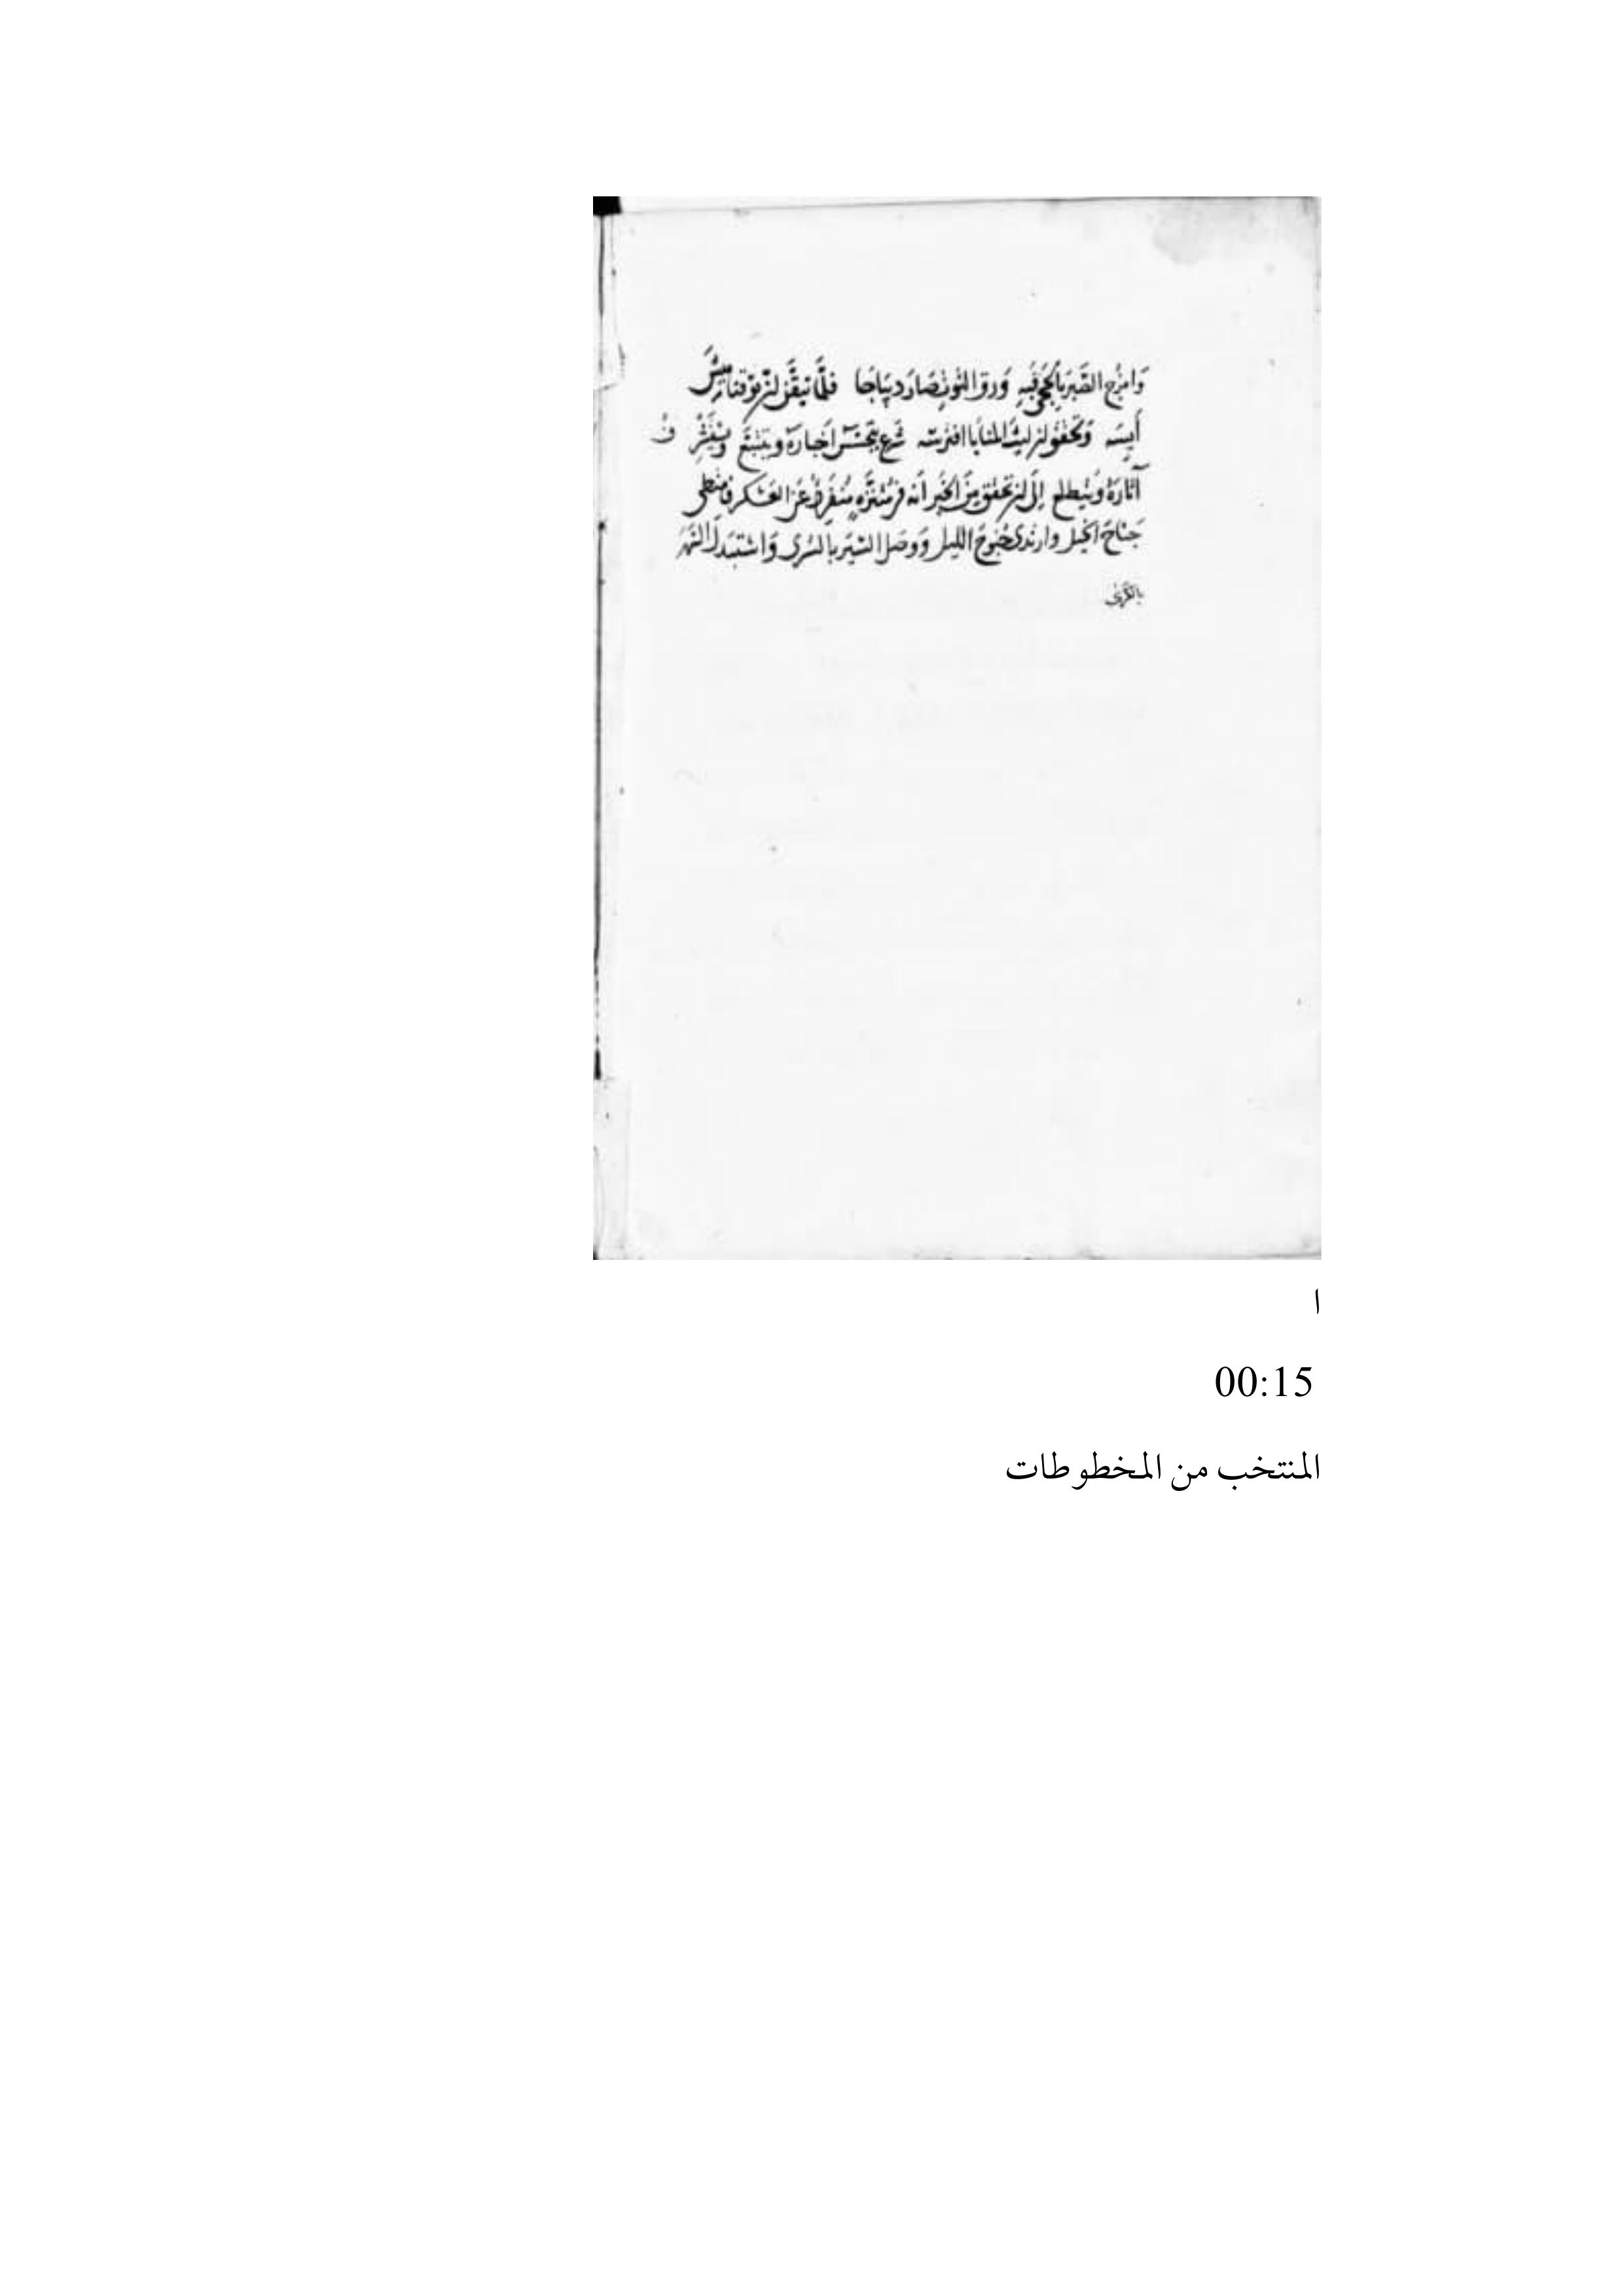 وَامزُج الصَّبرَ بِالحجى فبِهِ وَرق التوت صَارَ ديبَاجَا فلمَّا تيقَّن
أَيِسَه وَتحقق ان ليث المنايا افترسَه شرع يتجسَّس اخبارَهُ ويتتبَّع وَيستَقرُّ
آثَارَهُ وَيتطلع إلى ان تحقق مِنَ الخَبر أنه في مُتنزَّهٍ مُنفَردٌ عَن العَسْكر فامتطى
جَناحَ الخيل وارتدى جُنوحَ الليل وَوصَل السَّيرَ بالسُرى وَاسْتبدَل السَّهَرَ
بالكرى
ا
00:15
المنتخب من المخطوطات